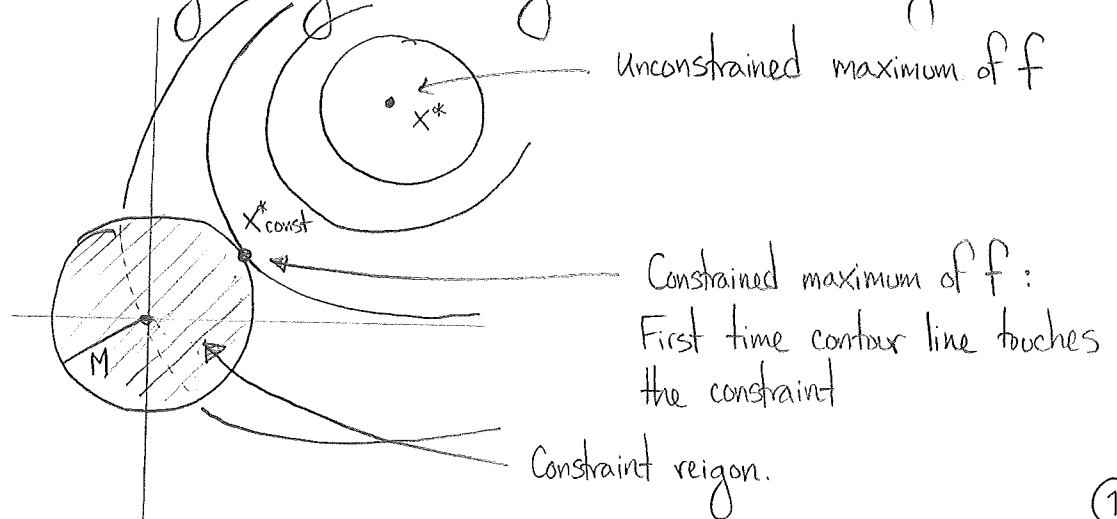 Unconstrained maximum of f
X*
X*const
Constrained maximum of f:
First time contour line touches
the constraint
M
Constraint reigon.